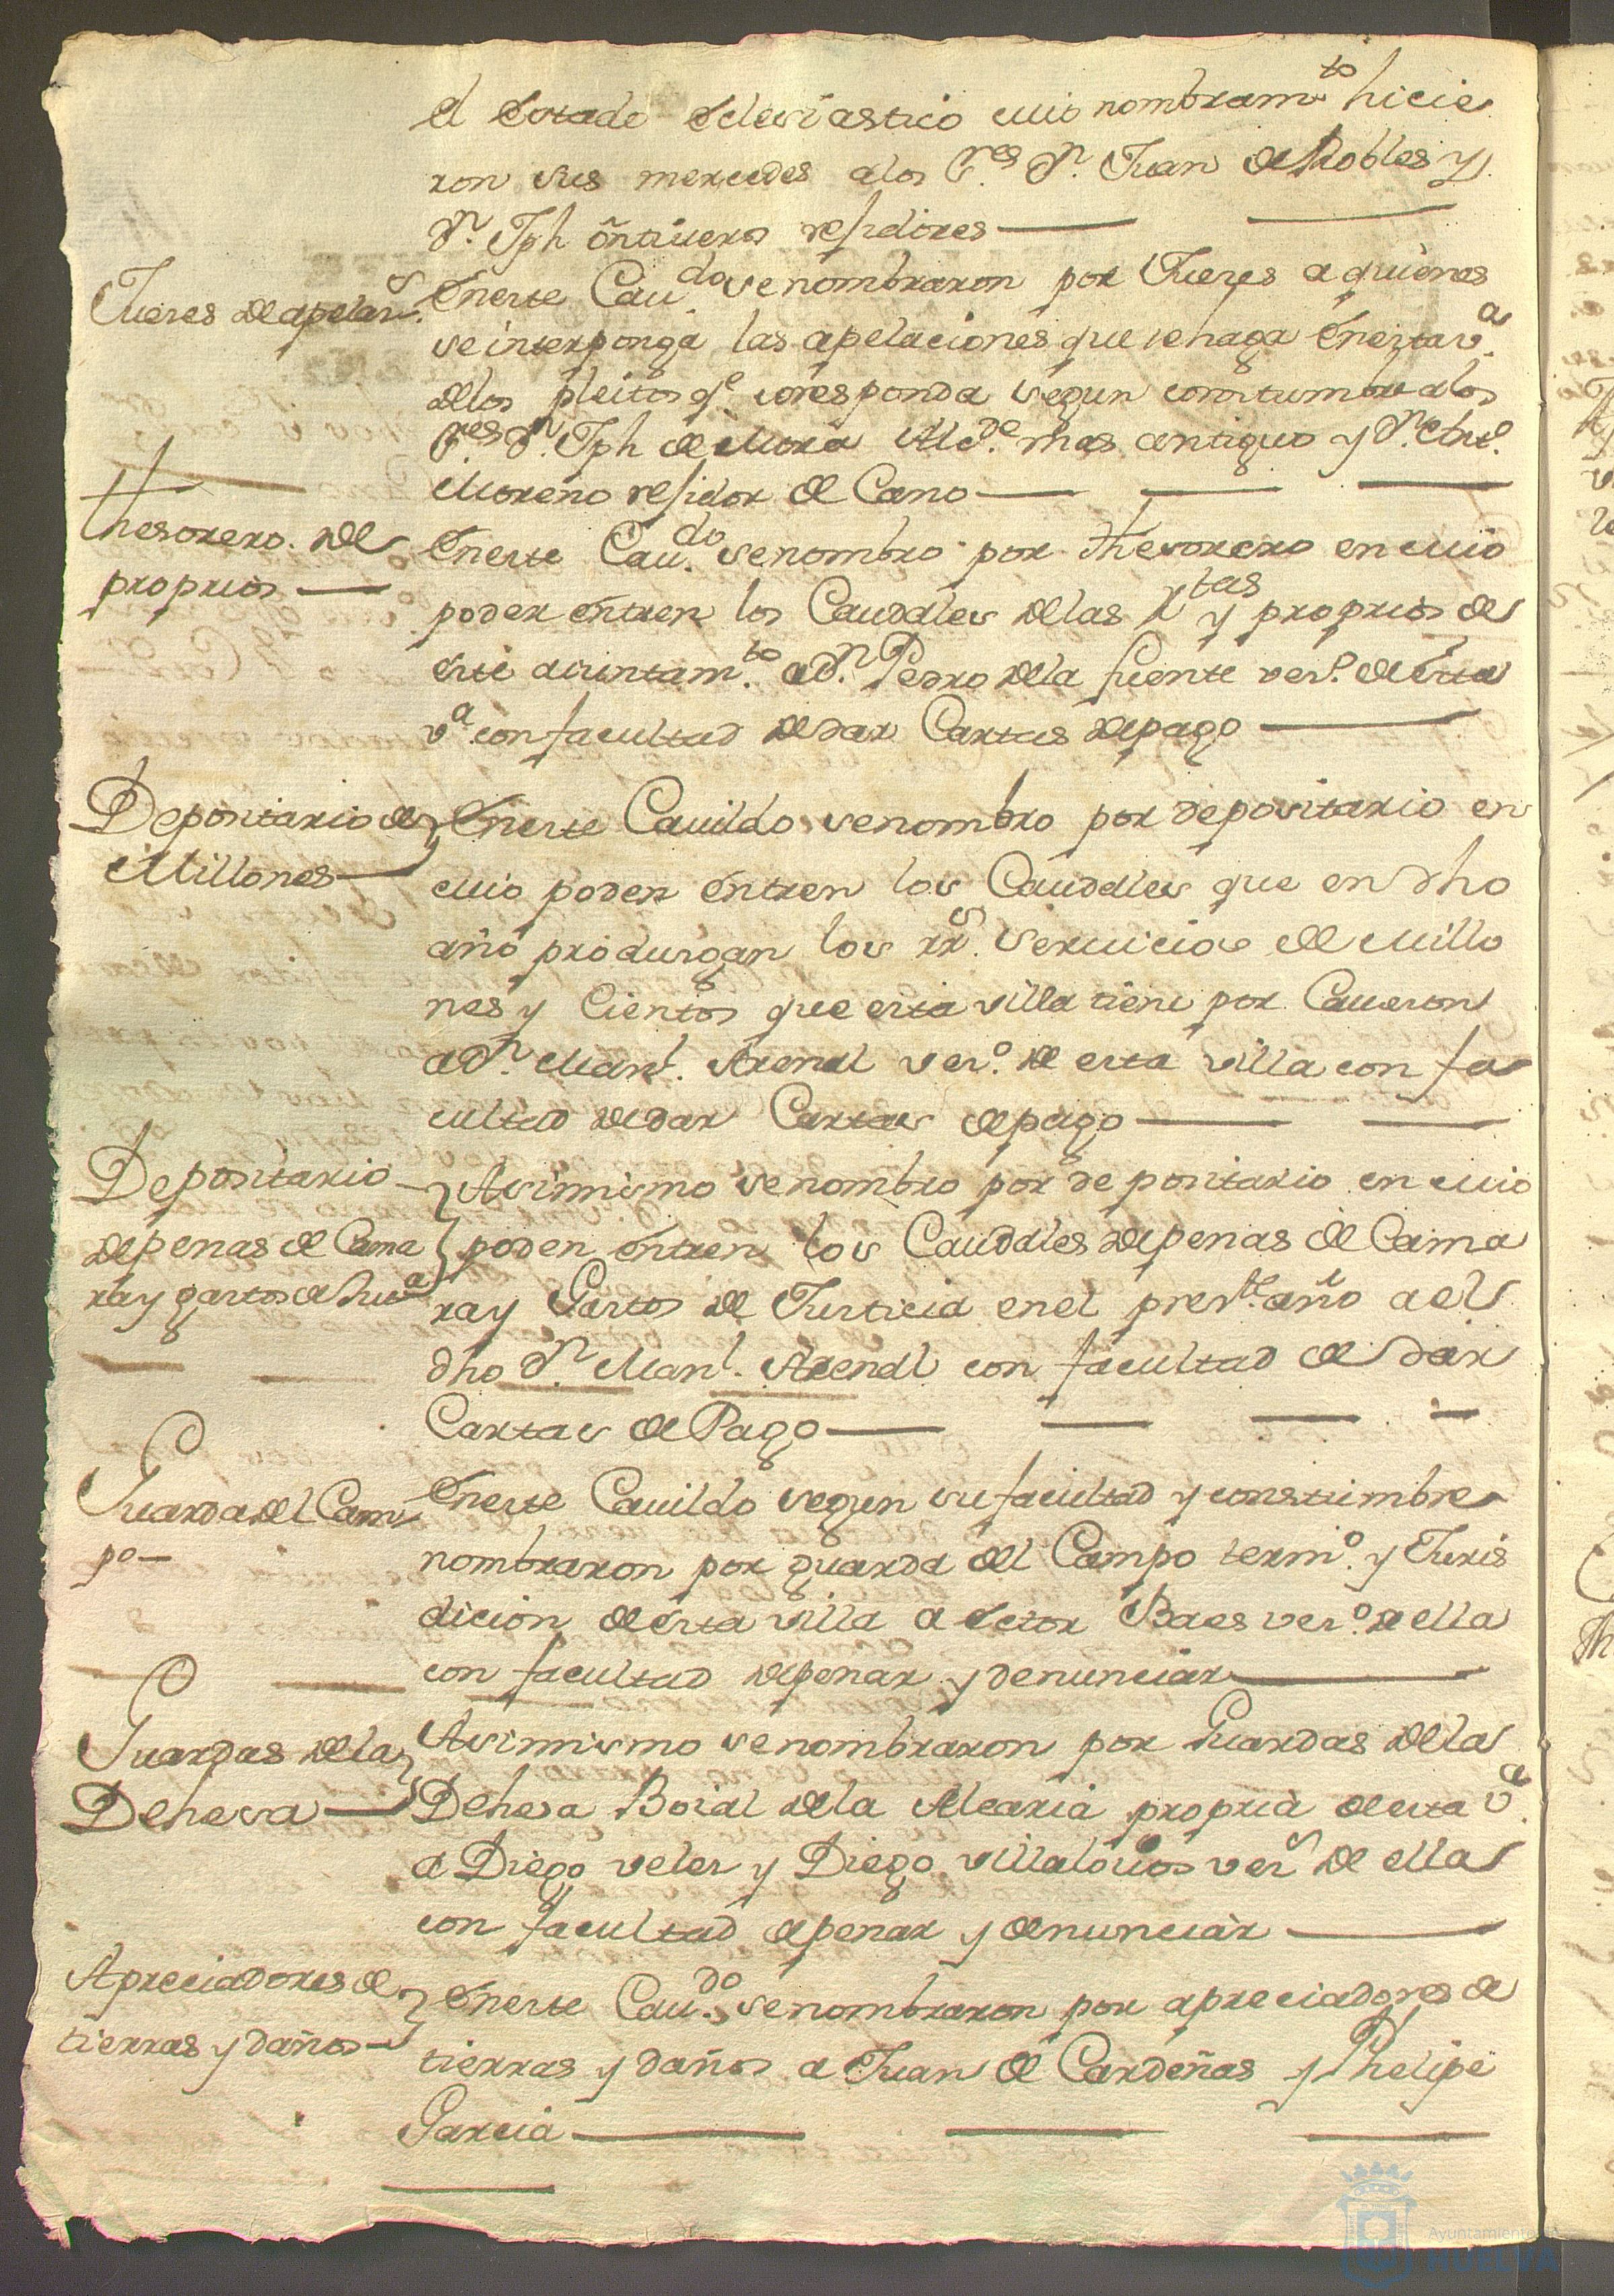 el estado eclesiastico cuio nombramto hicie
ron sus mercedes a los Sres Dn. Juan de Robles y
Dn. Jph Ontiveros rejidores
Jueses de apelass.
En este Caudo se nombraron por Jueses a quienes
se interponga las apelaciones que se haga en esta va.
de los pleitos qe. coresponda segun constumbre a los
Sres. Dn. Jph de Mora Alcde. mas antiguo y Dn.
Moreno rejidor de Cano
thesorero de
proprios
En este Caudo. se nombro por thesorero en cuio
poder entren los Caudales de las Rtas y proprios de
este aiuntamto. a Dn. Pedro de la fuente veso. de esta
va. con facultad de dar Cartas de pago
Depositario de
Millones
En este Cauildo se nombro por depositario en
cuio poder entren los Caudales que en dho
año produsgan los rrs. Seruicios de Millo
nes y Cientos que esta villa tiene por Caueson
a Dn. Manl. Arenal veso. de esta villa con fa
cultad de dar Cartas de pago
Depositario
de penas de Cama
ra y gastos de Justa
Asimismo se nombro por depositario en cuio
poder entren los Caudales de penas de Cama
ra y Gastos de Justicia en el preste. año a el
dho Dn. Manl. Arenal con facultad de dar
Cartas de Pago
Guarda del Cam
po
En este Cauildo segun su facultad y constumbre
nombraron por guarda del Campo termo. y Juris
dicion de esta villa a Ector Baes veso. de ella
con facultad de penar y denunciar
Guardas de la
Dehesa
Asimismo se nombraron por Guardas de la
Dehesa Boial de la Alcaria propria de esta va.
a Diego veles y Diego villalouos vess de ella
con facultad de penar y denunciar
Apreciadores de
tierras y daños
En este Caudo. se nombraron por apreciadores de
tierras y daños a Juan de Cardeñas y Phelipe
Garcia
Ayuntamiento
HUELVA